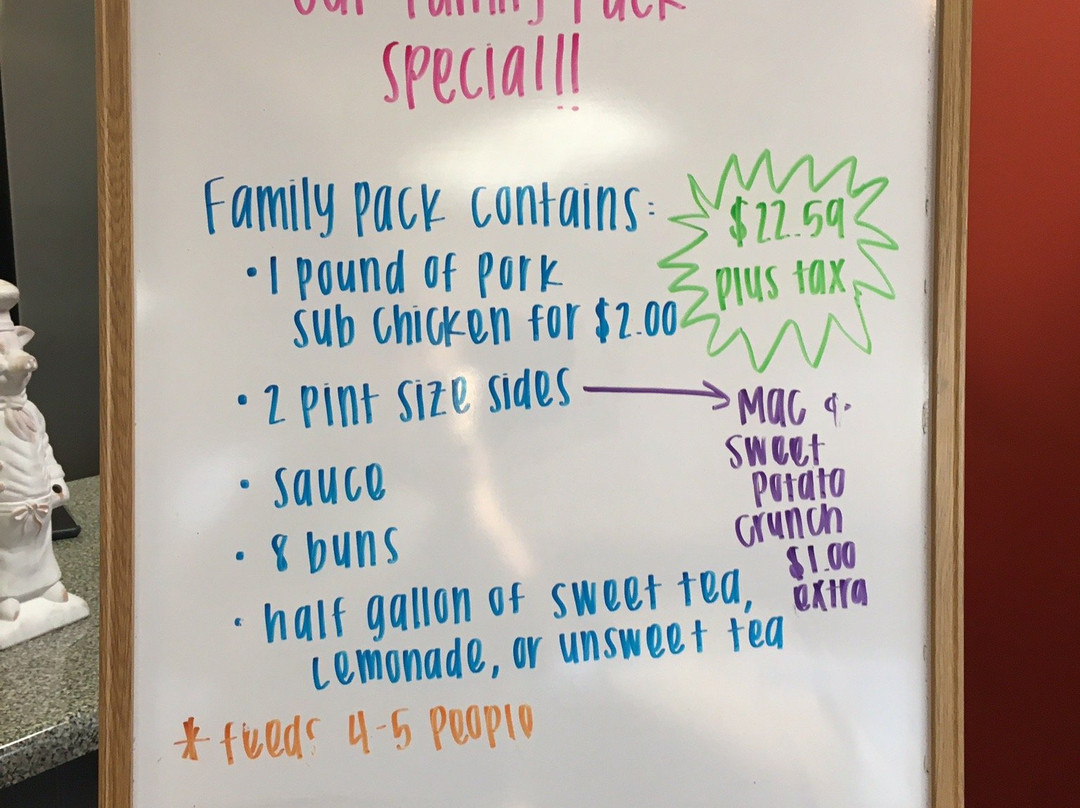 our Family Pack
special!!
Family Pack contains:
$22.59
plus tax
• 1 pound of pork
sub chicken for $2.00
• 2 pint size sides
Mac &
sweet
potato
crunch
$1.00
extra
• sauce
• 8 buns
• half gallon of sweet tea,
Lemonade, or unsweet tea
* feeds 4-5 people